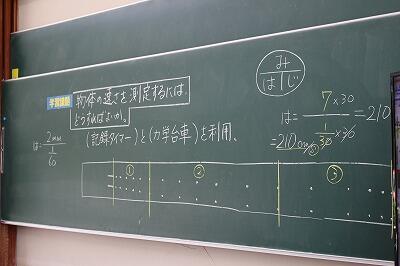 学習課題
物体の速さを測定するには、
どうすればよいか。
(記録タイマー)と(力学台車)を利用。
み
は|じ
は= 2mm / 1/60
は= 7×30 / 1/30×30 =210
=210cm/s
① ② ③